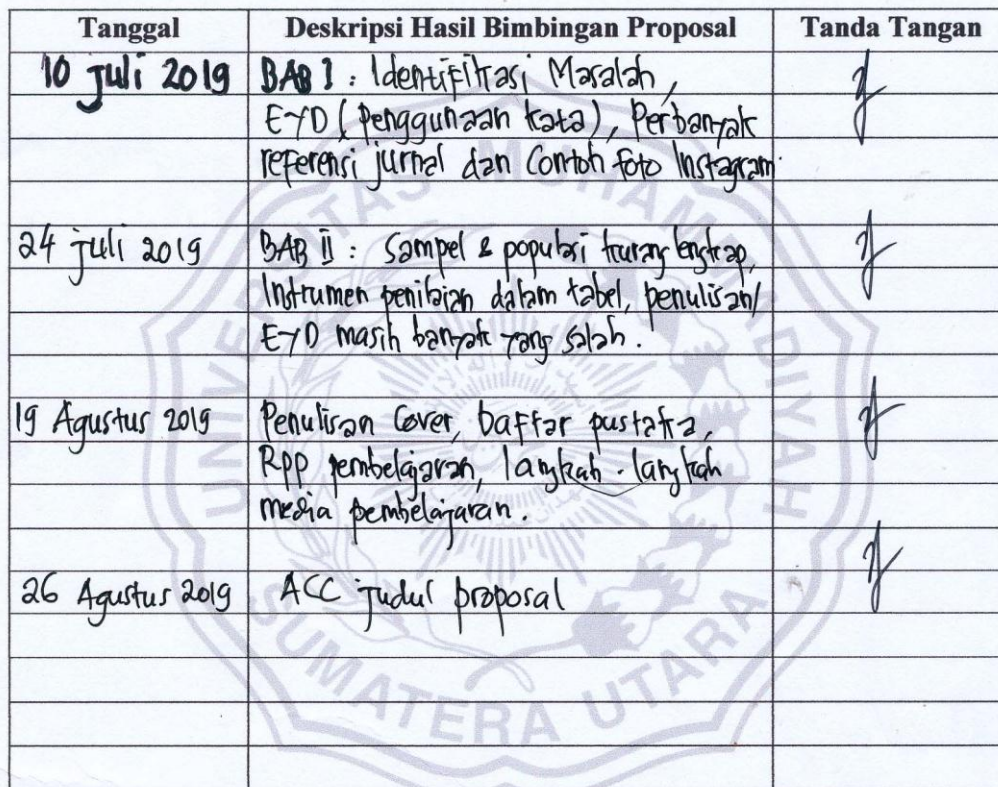 Tanggal Deskripsi Hasil Bimbingan Proposal Tanda Tangan
10 Juli 2019 BAB I : Identifikasi Masalah,
EYD (penggunaan kata), Perbanyak
referensi jurnal dan Contoh foto Instagram.
24 Juli 2019 BAB II : Sampel & populasi kurang lengkap,
Instrumen penilaian dalam tabel, penulisan/
EYD masih banyak yang salah.
19 Agustus 2019 Penulisan Cover, Daftar pustaka,
RPP pembelajaran, langkah-langkah
media pembelajaran.
26 Agustus 2019 ACC judul proposal
UNIVERSITAS MUHAMMADIYAH
SUMATERA UTARA